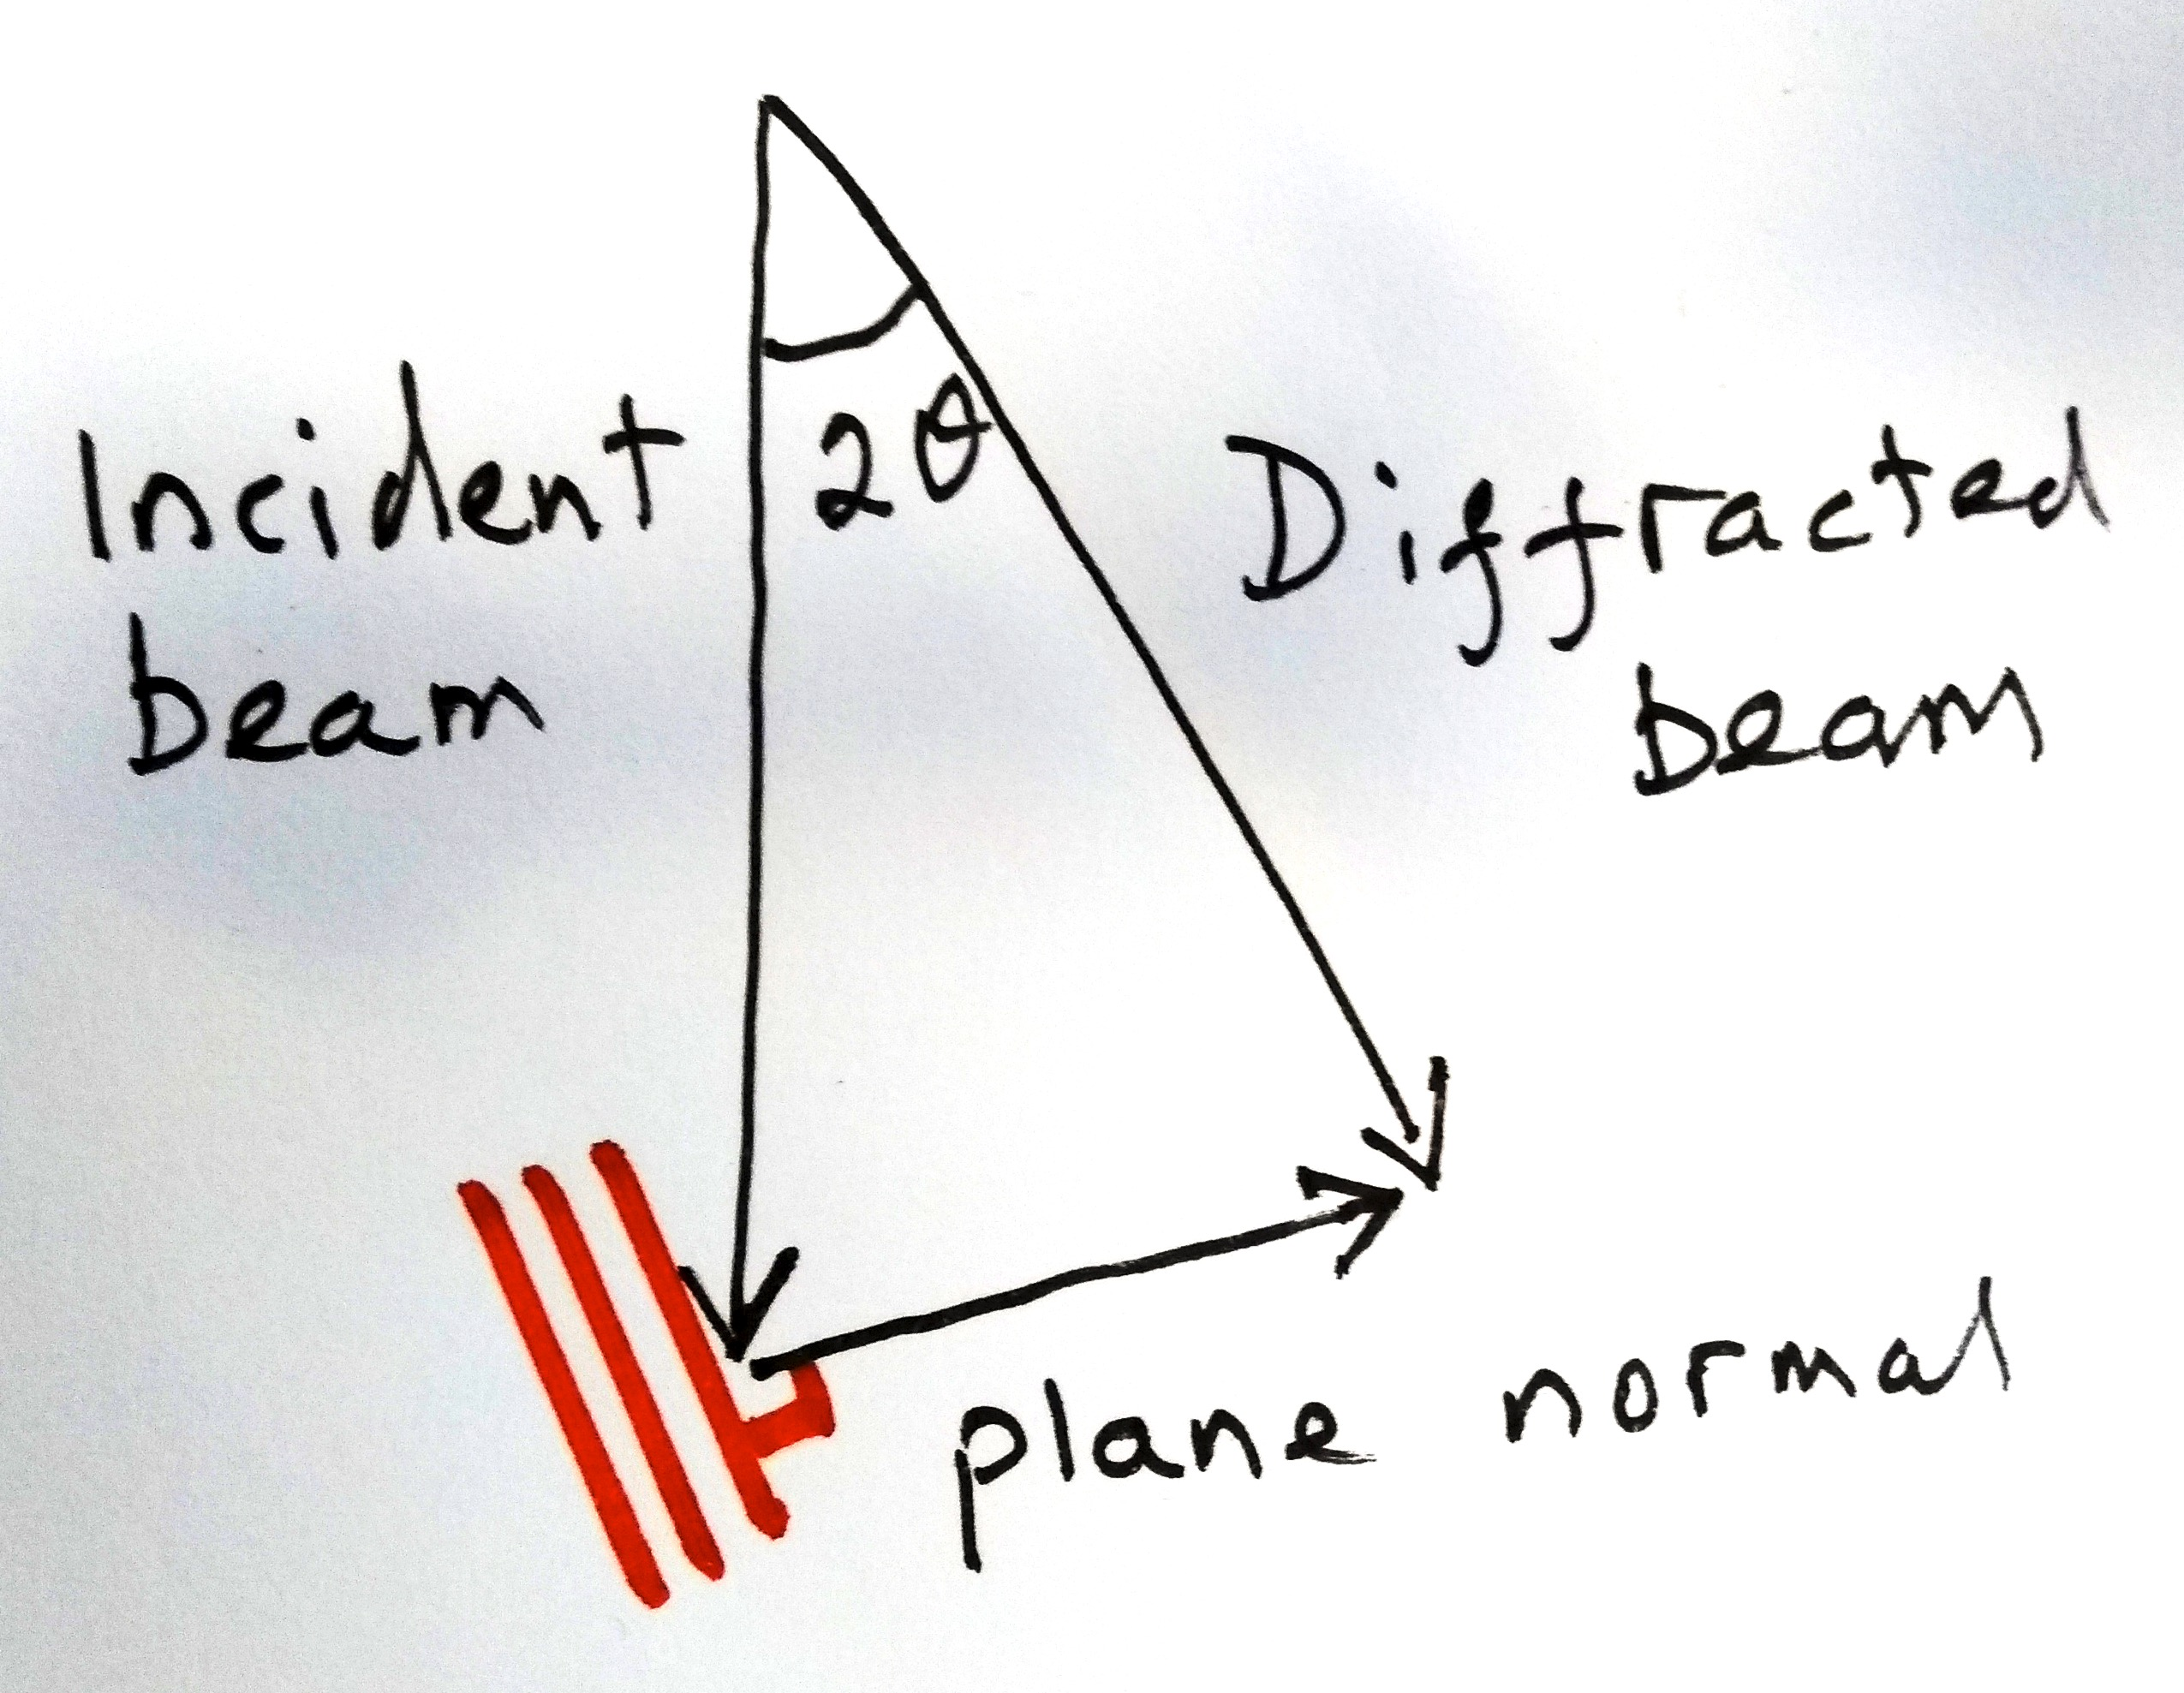 Incident
beam
2θ
Diffracted
beam
plane normal